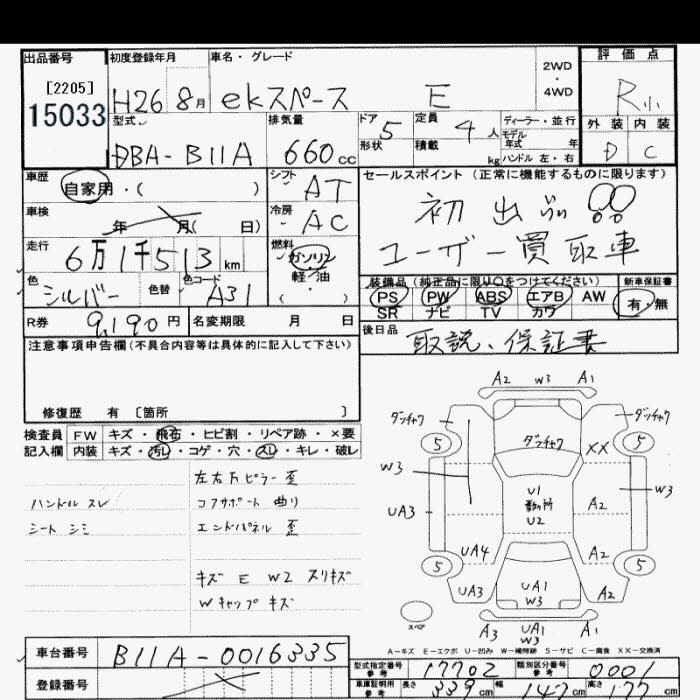 出品番号
[2205]
15033
初度登録年月
H26 8月
車名・グレード
ekスペース E
2WD
・
4WD
評価点
R小
型式
DBA-B11A
排気量
660cc
ドア
5
形状
定員
4人
積載
kg
ディーラー・並行
モデル年式 年
ハンドル 左・右
外装 内装
D C
車歴
自家用・( )
車検
年 月( 日)
走行
6万1千513km
色
シルバー
色替
色コード
A31
シフト
AT
冷房
AC
燃料
ガソリン
軽・油
( )
セールスポイント (正常に機能するものに限ります)
初出品!!
ユーザー買取車
装備品 (純正品に限り○をつけてください)
PS PW ABS エアB AW
SR ナビ TV カワ
新車保証書
有・無
後日品
取説、保証書
R券
9,190円
名変期限 月 日
注意事項申告欄(不具合内容等は具体的に記入して下さい)
修復歴 有 [箇所 ]
検査員
記入欄
FW キズ・飛石・ヒビ割・リペア跡・×要
内装 キズ・汚レ・コゲ・穴・スレ・キレ・破レ
ハンドル スレ
シート シミ
左右Fピラー 歪
コアサポート 曲り
エンドパネル 歪
キズ E W2 スリキズ
Wキャップ キズ
A2 W3 A1
ダッチャク
ダッチャク
ダッチャク
5
5
XX
W3
W3
U1
U2
A2
UA3
UA4
A2
5
5
UA3
UA1
W3
A2
スペア
A3 UA1 A1
W3
A-キズ E-エクボ U-凹み W-補修跡 S-サビ C-腐食 XX-交換済
車台番号
B11A-0016335
登録番号
型式指定番号
参考
17702
類別区分番号
参考
0001
車庫証明用
参考
長さ
339cm
幅
147cm
高さ
177cm